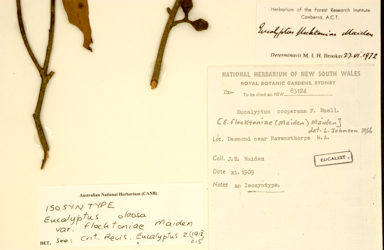 Herbarium of the Forest Research Institute
Canberra, A.C.T.
Eucalyptus flocktoniae Maiden
Determinavit M. I. H. Brooker 27.vii.1972
NATIONAL HERBARIUM OF NEW SOUTH WALES
ROYAL BOTANIC GARDENS, SYDNEY
To be cited as: NSW 83124
Eucalyptus cooperana F. Muell.
[E. flocktoniae (Maiden) Maiden]
det. L. Johnson 1966
Loc. Desmond near Ravensthorpe W.A.
EUCALIST.
Coll. J.H. Maiden
Date xi.1909
Notes an Isosyntype.
Australian National Herbarium (CANB)
ISOSYNTYPE
Eucalyptus oleosa
var. flocktoniae Maiden
DET. see: Crit. Revis. Eucalyptus 2